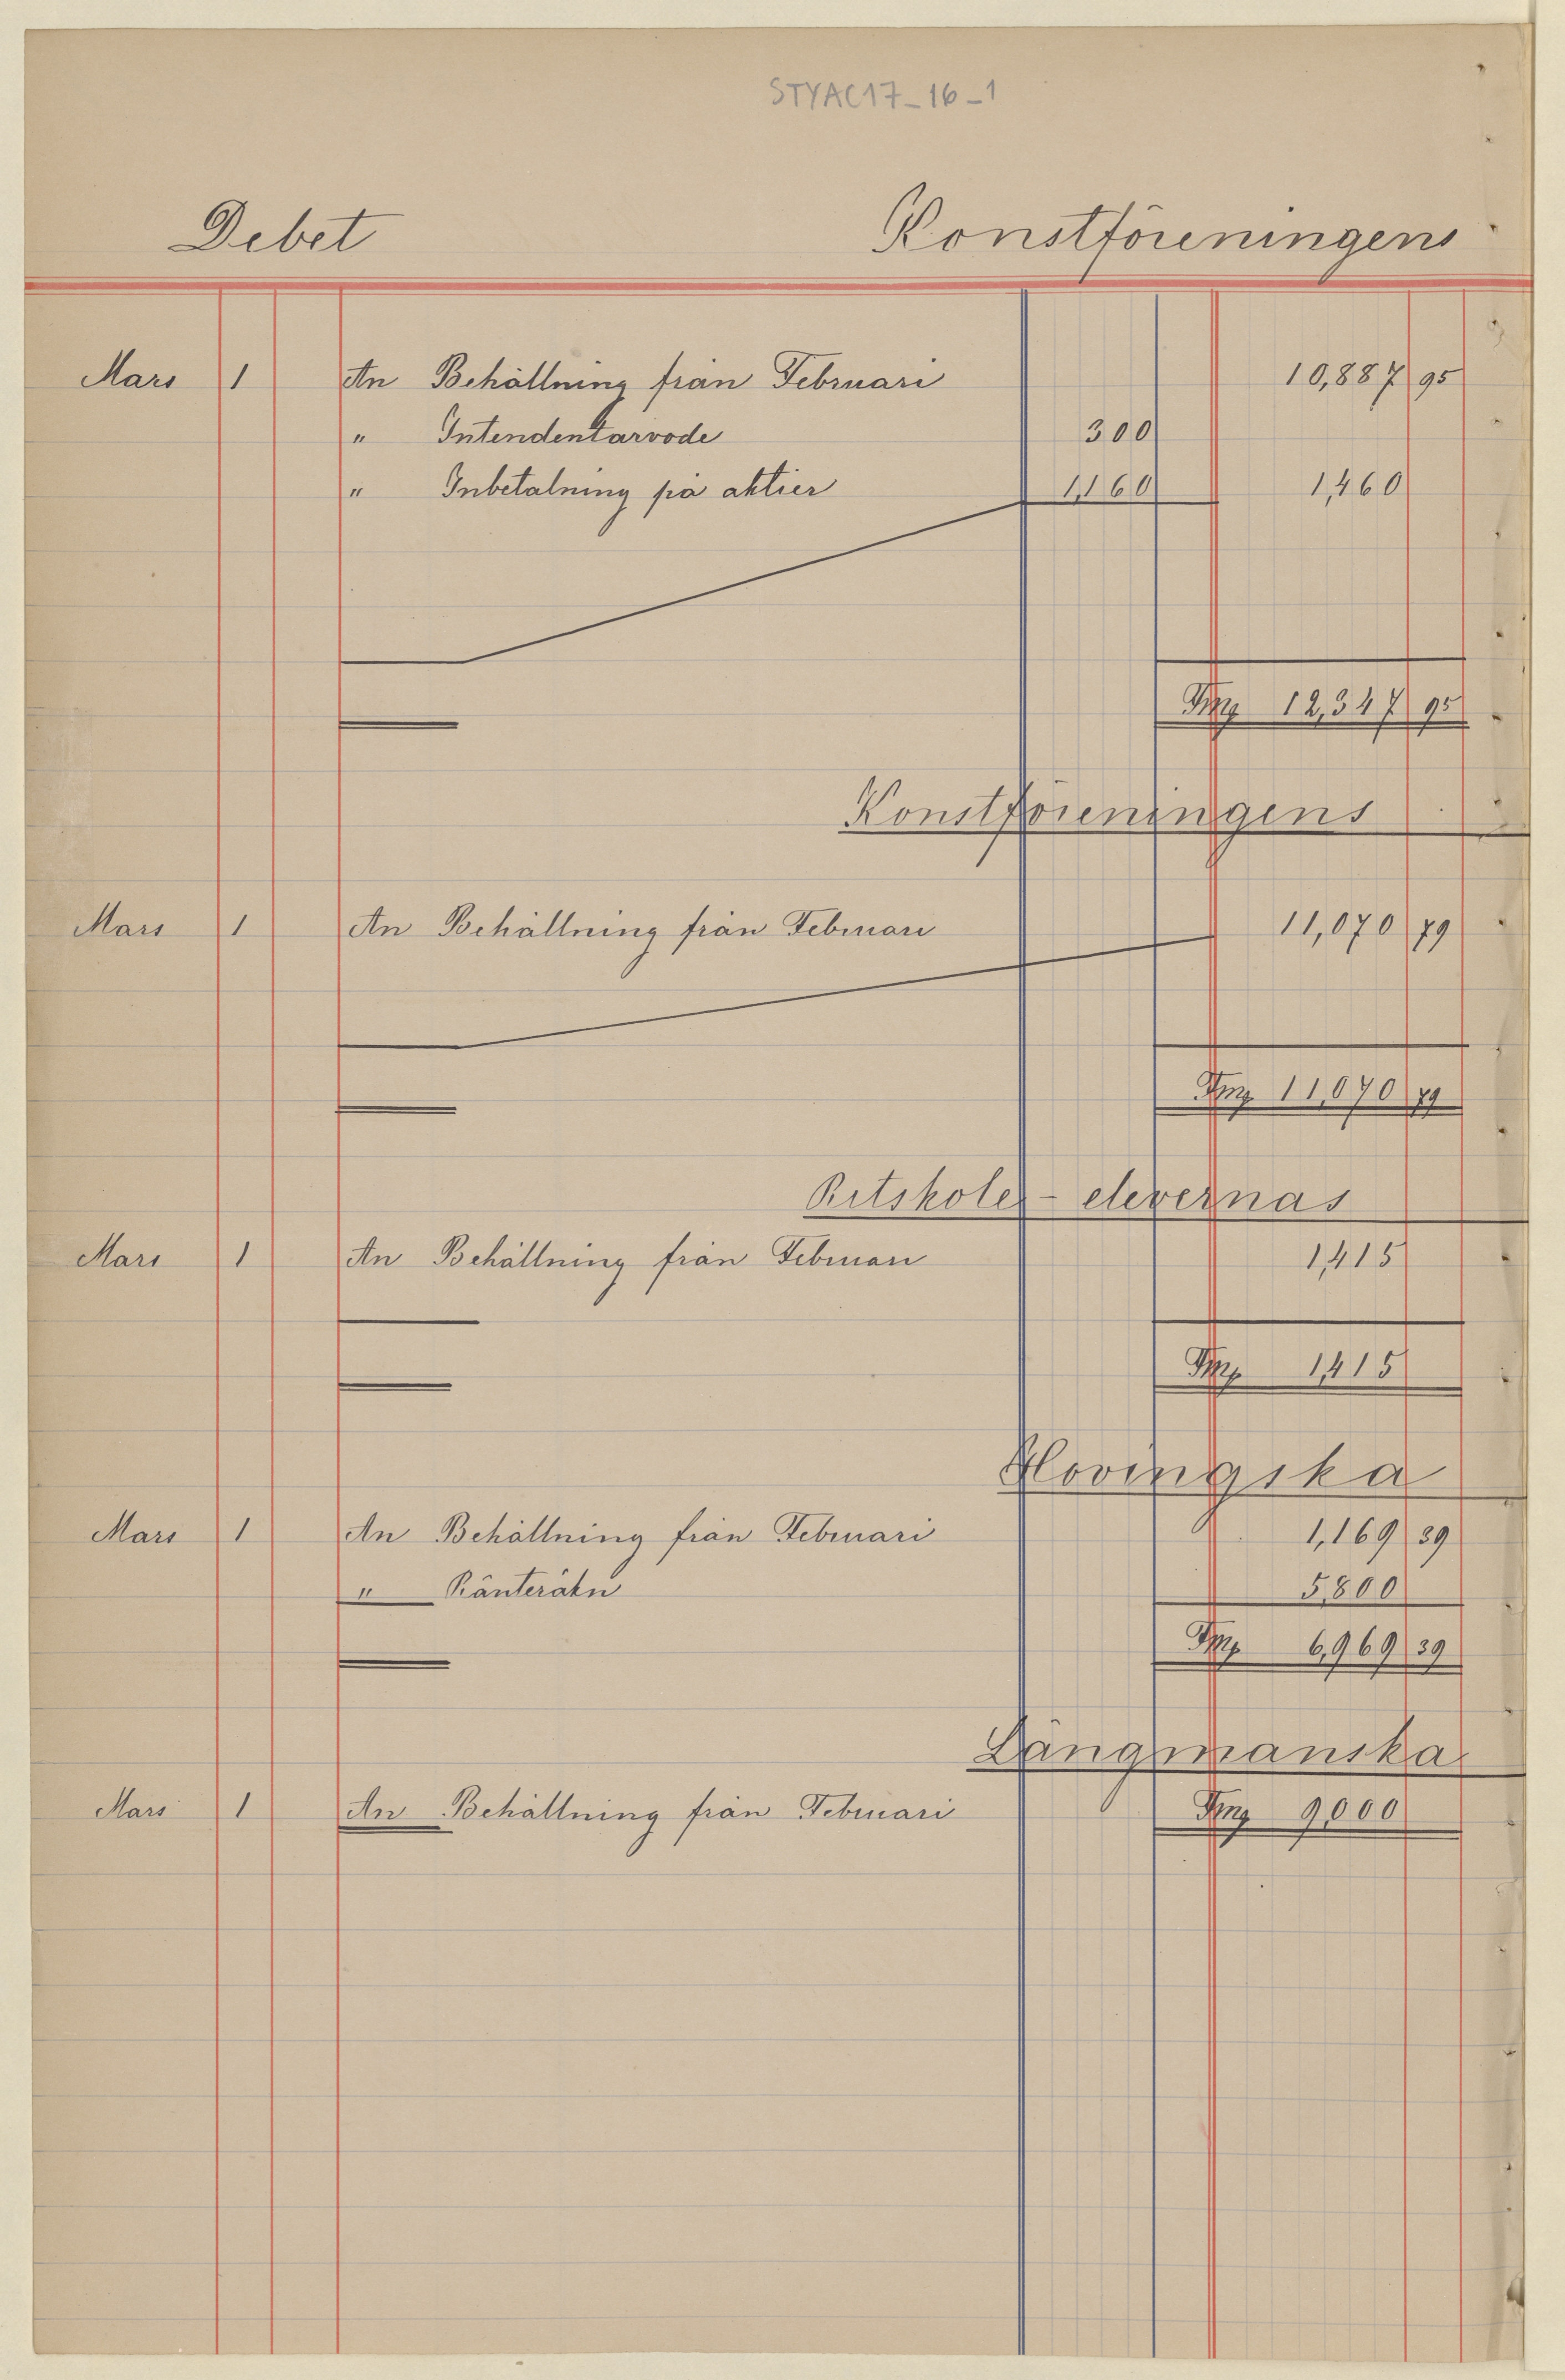 STYAC17_16_1
Debet Konstföreningens
Mars 1 An Behållning från Februari 10,887 95
" Intendentarvode 300
" Inbetalning på aktier 1,160 1,460
Fmg 12,347 95
Konstföreningens
Mars 1 An Behållning från Februari 11,070 79
Fmg 11,070 79
Ritskole-elevernas
Mars 1 An Behållning från Februari 1,415
Fmg 1,415
Hovingska
Mars 1 An Behållning från Februari 1,169 39
" Ränteräkn 5,800
Fmg 6,969 39
Längmanska
Mars 1 An Behållning från Februari Fmg 9,000